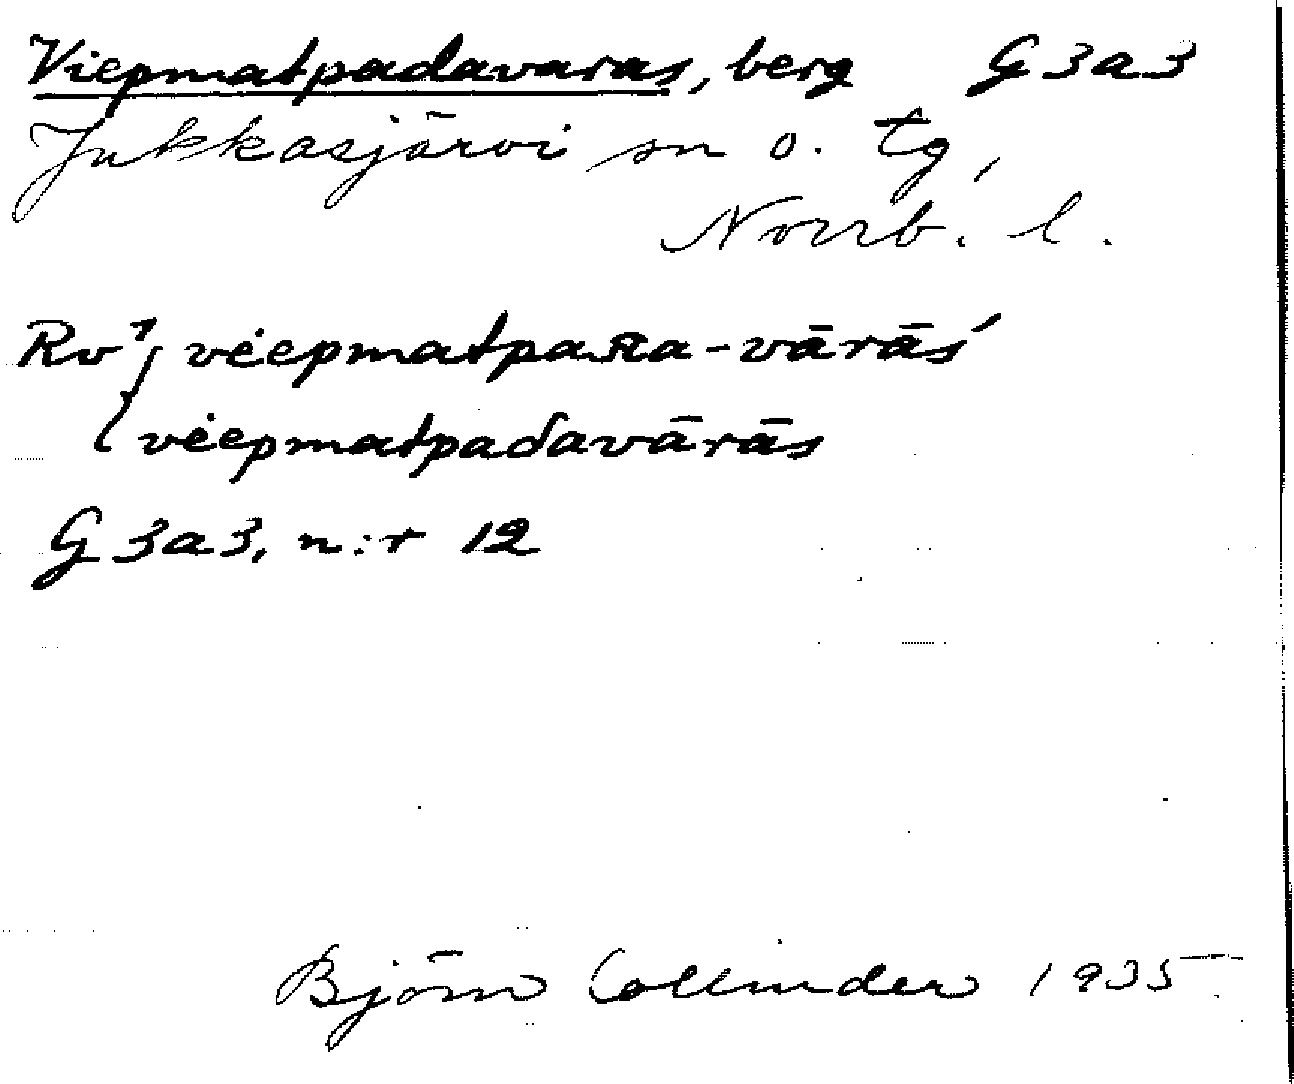 Viepmatpadavaras, berg G 3 a 3
Jukkasjärvi sn o. tg,
Norrb. l.
Rv⁊ vėepmatpaᴙa-vārāś
vėepmatpadavārās
G 3 a 3, n:r 12
Björn Collinder 1935